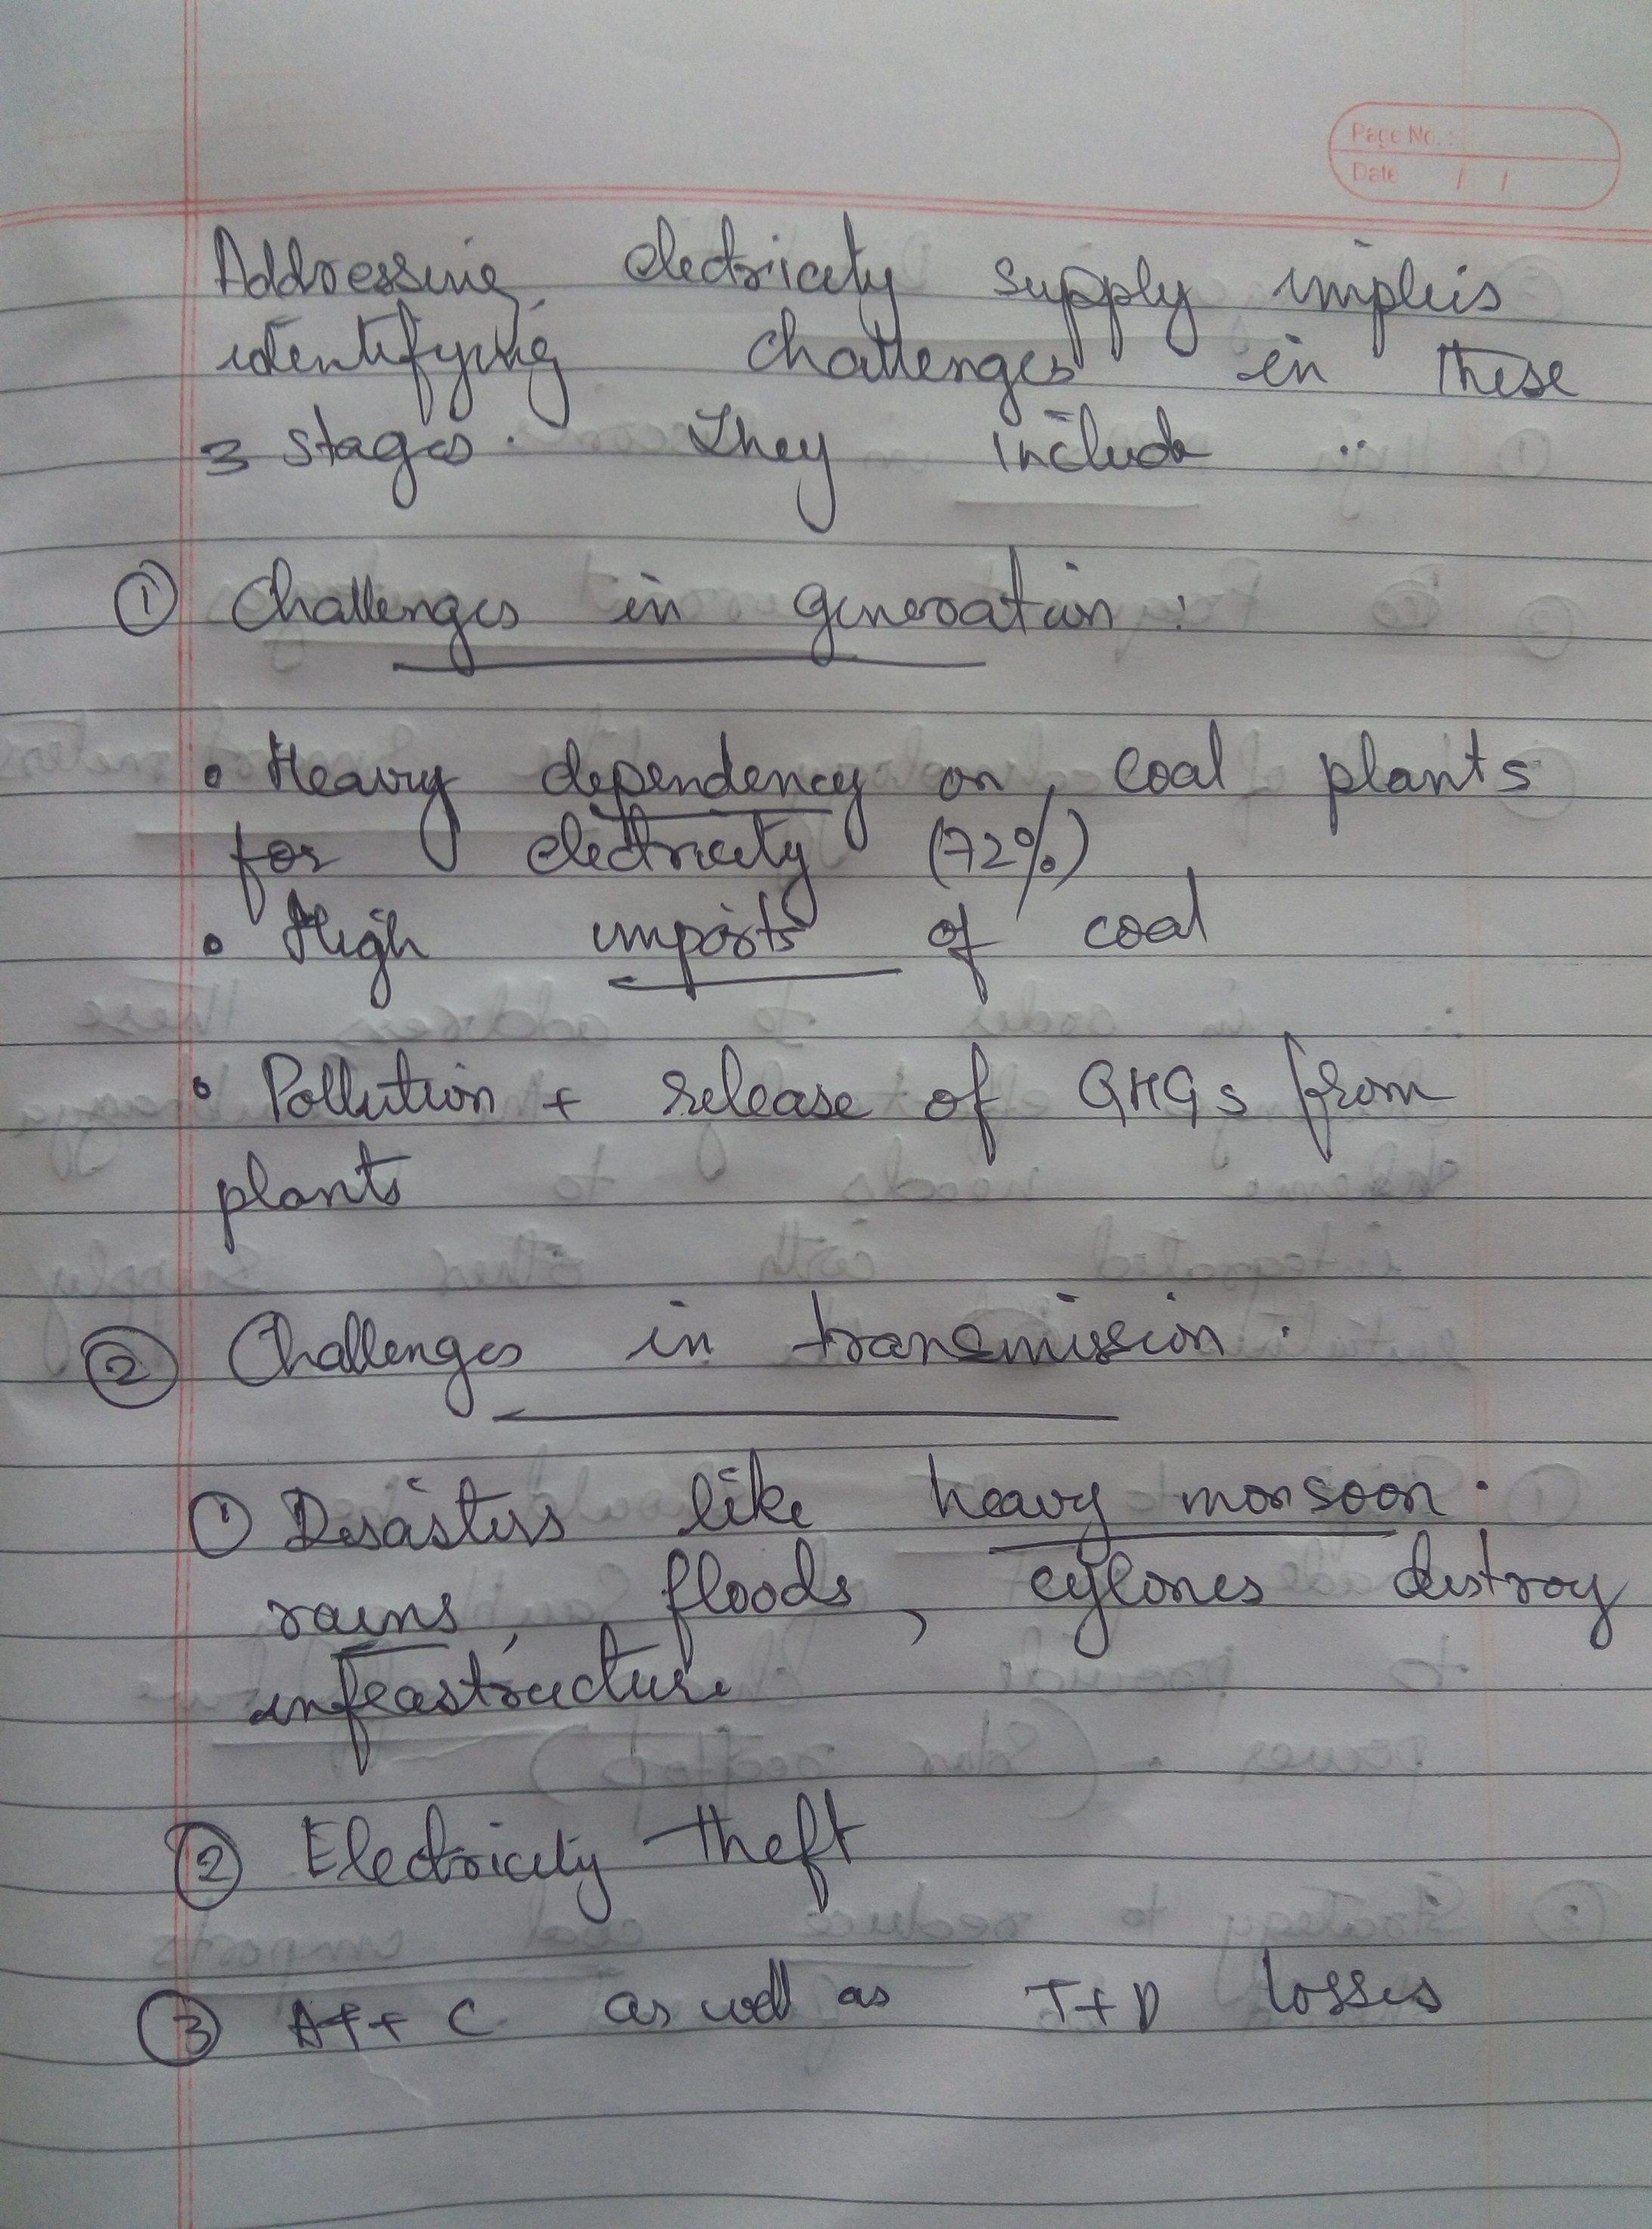 Page No. :
Date / /
Addressing electricity supply implies
identifying challenges in these
3 stages. They include :
① Challenges in generation :
• Heavy dependency on coal plants
for electricity (72%)
• High imports of coal
• Pollution + release of GHGs from
plants
② Challenges in transmission :
① Disasters like heavy monsoon
rains, floods, cylones destroy
infrastructure
② Electricity theft
③ AT + C as well as T+D losses